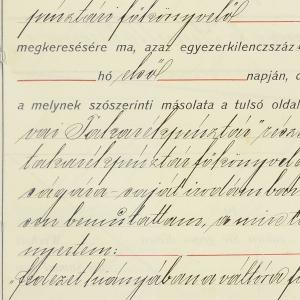 pénztári főkönyvelő
megkeresésére ma, azaz egyezerkilenczszáz
hó első napján, d
a melynek szószerinti másolata a tulsó oldal
vai Takarékpénztár" rész
takarékpénztár főkönyvelő
ságára – saját irodámban
son bemutattam, a mire t
nyertem:
„Fedezet hiányában a váltóra f